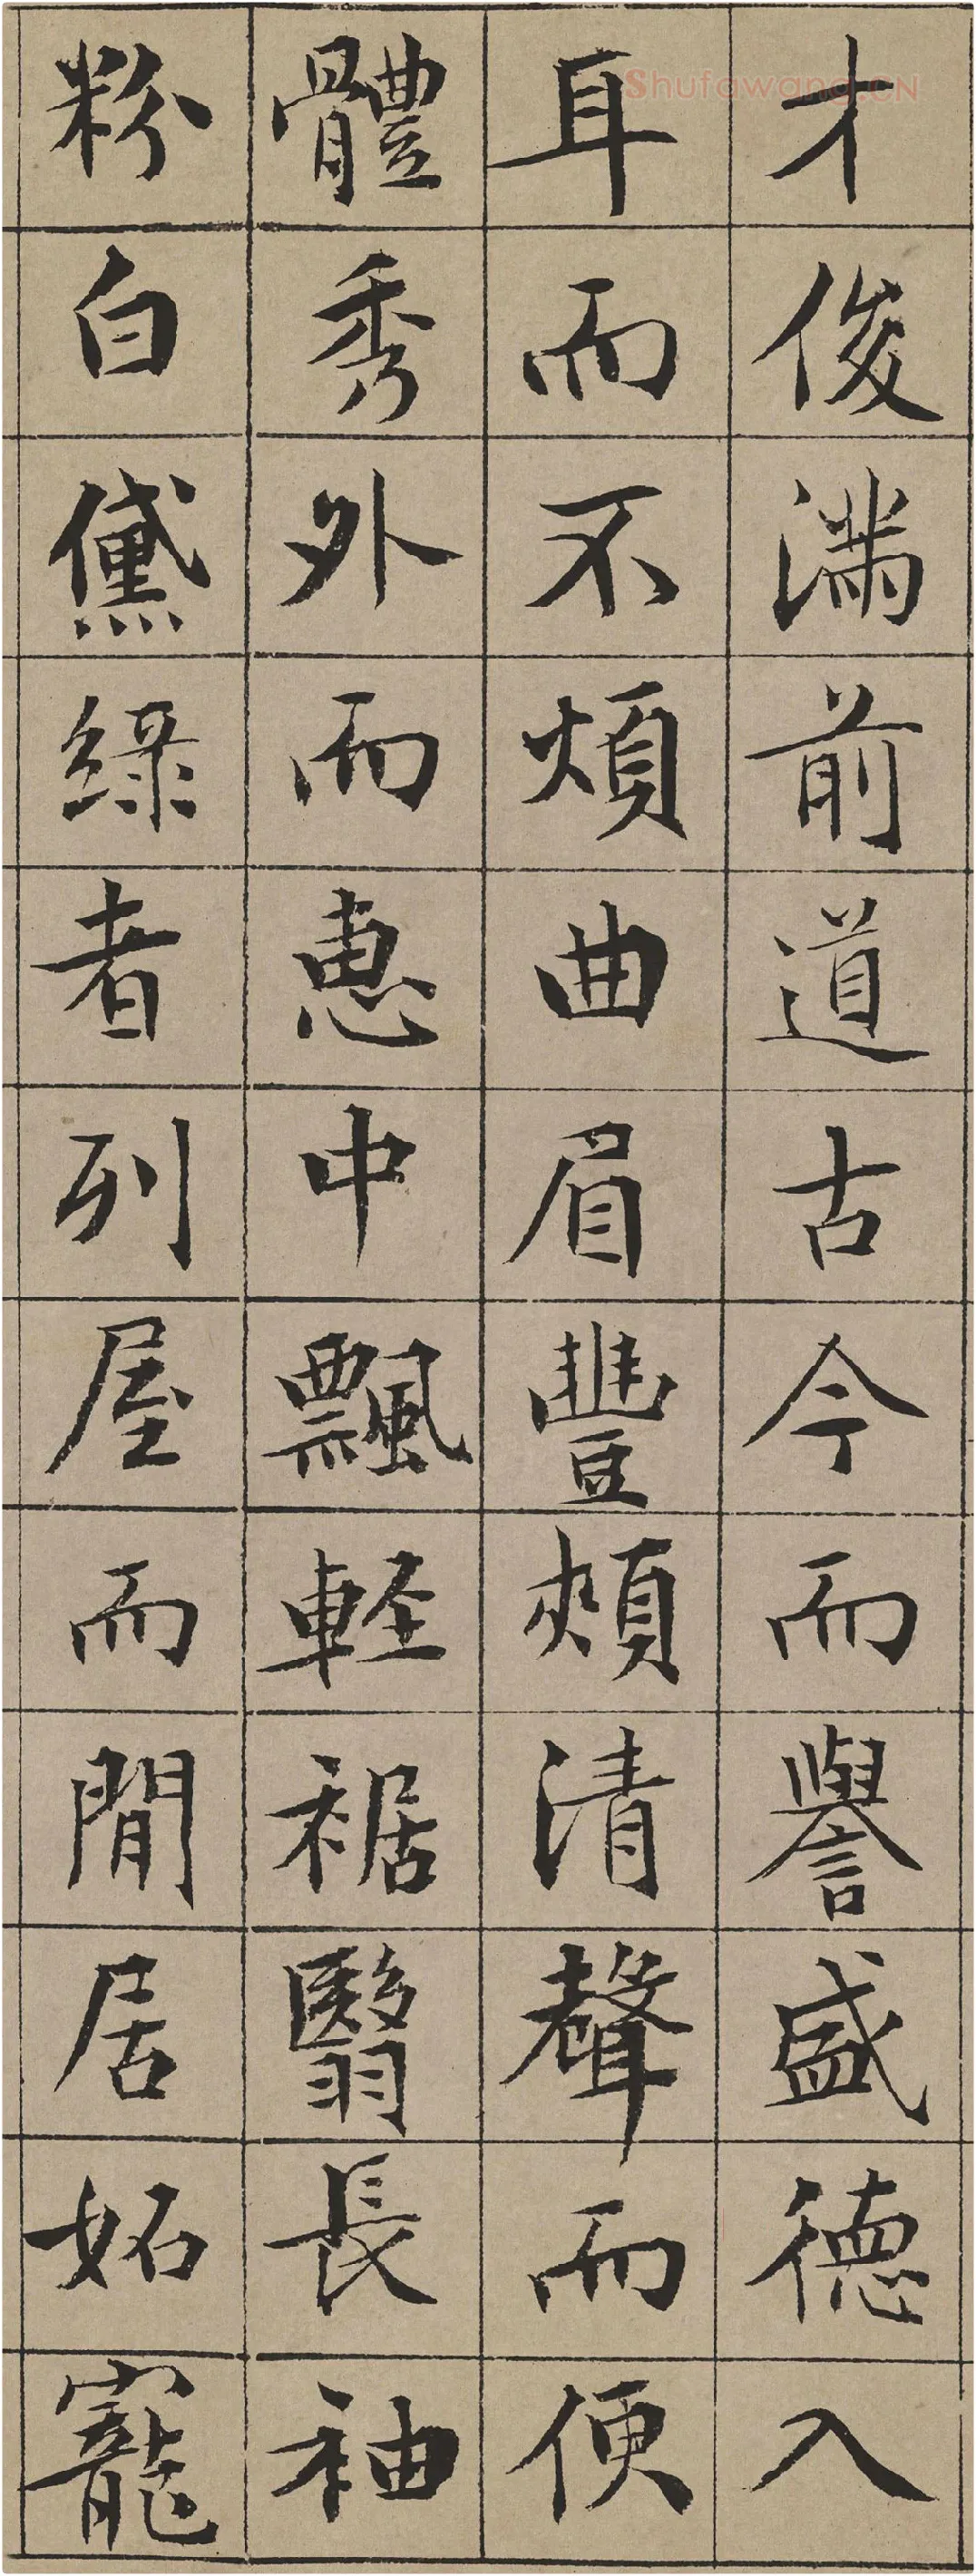 才俊满前道古今而譽盛德入
耳而不煩曲眉豐頰清聲而便
體秀外而惠中飄軽裾翳長袖
粉白黛綠者列屋而閒居妬寵
Shufawang.CN